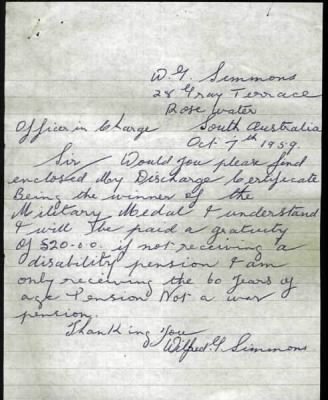 W. G. Simmons
28 Gray Terrace
Rosewater
Officer in Charge South Australia
Oct 7th 1959.
Sir Would you please find
enclosed My Discharge Certificate
Being the winner of the
Military Medal I understand
I will be paid a gratuity
Of £20.0.0. if not receiving a
disability pension I am
only receiving the 60 years of
age Pension Not a war
pension.
Thanking You
Wilfred. G. Simmons